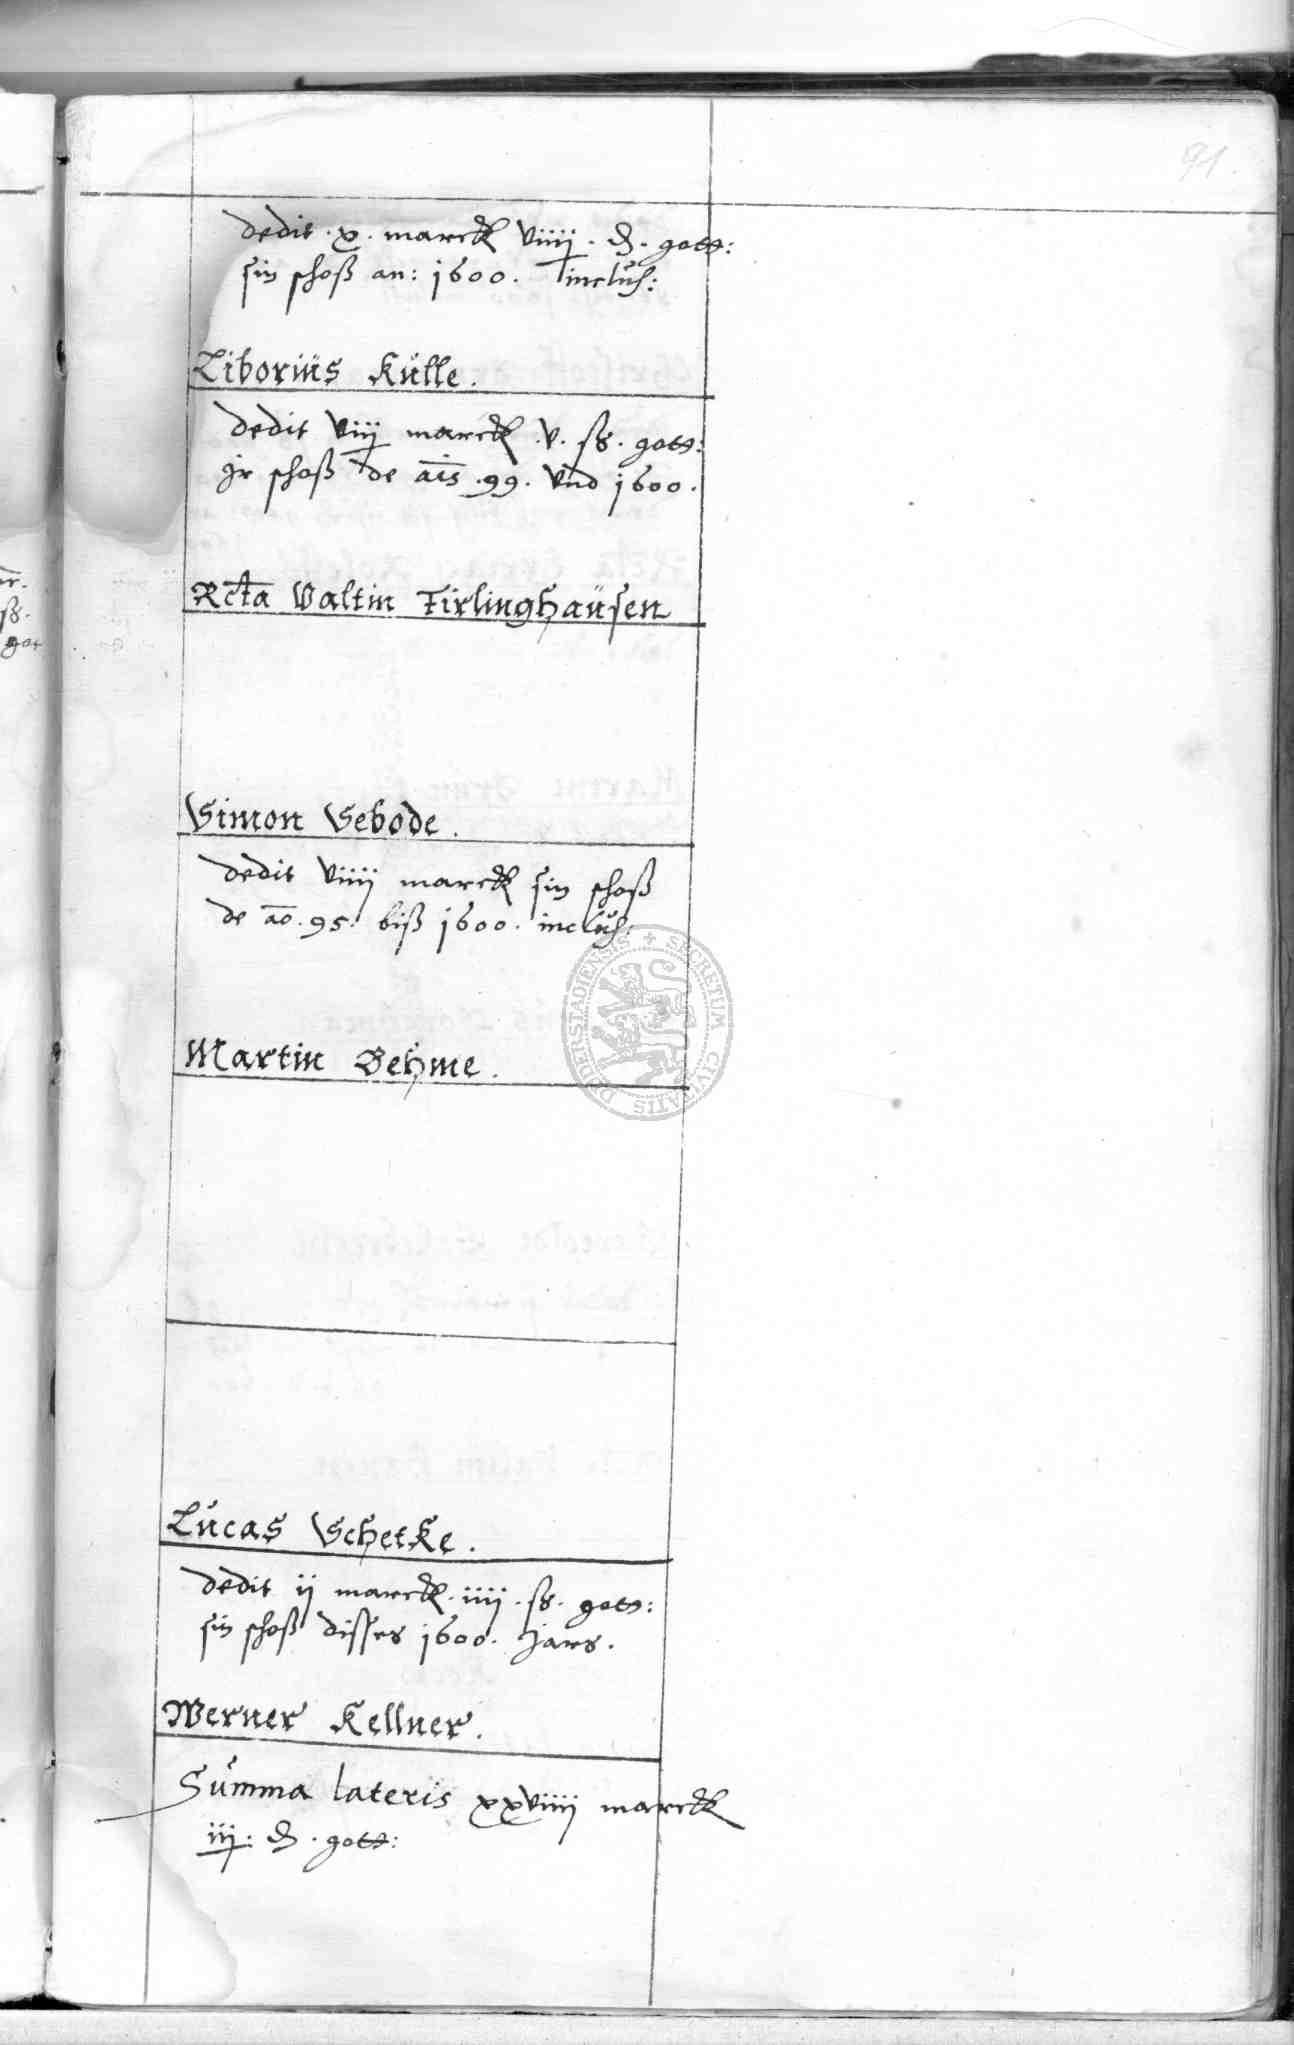 91.
dedit . x . marck viiij . d . gott:
sin schoß an: 1600. inclus:
Liborius Kulle.
dedit viij marck .v. ß . gott:
jr schoß de ais .99. vnd 1600.
Rcta Valtin Tirlinghausen
Simon Sebode.
dedit viiij marck sin schoß
de ao. 95. biß 1600. inclus:
SECRETUM CIVITATIS DUDERSTADIENSIS
Martin Behme.
Lucas Schetke.
dedit ij marck. iiij . ß . gott:
sin schoß disses 1600. jars.
Werner Kellner.
Summa lateris xxviiij marck
iij : d . gott: